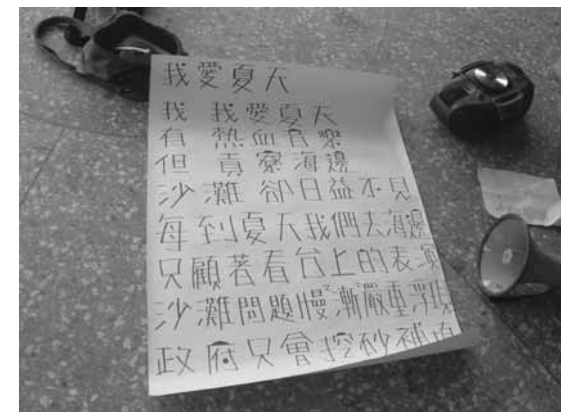 我愛夏天
我 我愛夏天
有 熱血音樂
但 貢寮海邊
沙灘 卻日益不見
每到夏天我們去海邊
只顧著看台上的表演
沙灘問題慢慢漸嚴重浮現
政府只會挖砂補